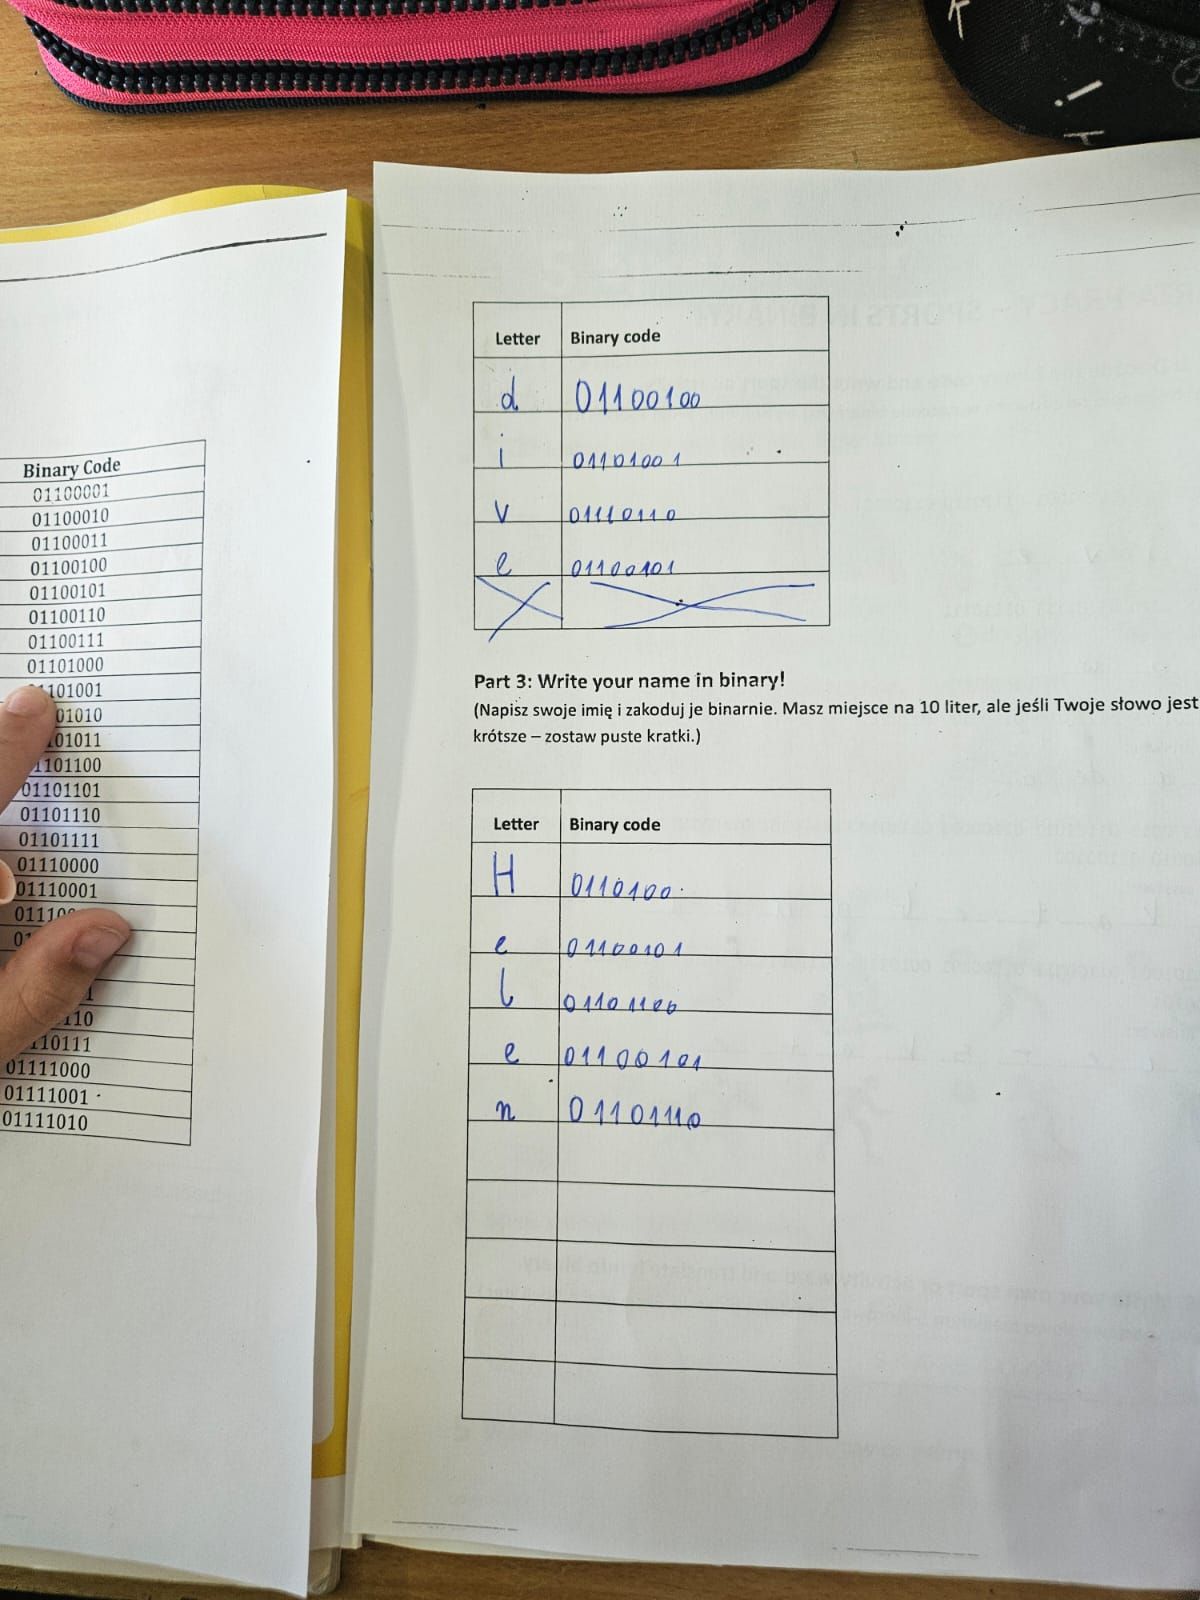 Binary Code
01100001
01100010
01100011
01100100
01100101
01100110
01100111
01101000
1101001
01010
01011
1101100
01101101
01101110
01101111
01110000
01110001
01110
01
1
110
110111
01111000
01111001
01111010
Letter Binary code
d 01100100
i 01101001
v 01110110
e 01100101
Part 3: Write your name in binary!
(Napisz swoje imię i zakoduj je binarnie. Masz miejsce na 10 liter, ale jeśli Twoje słowo jest
krótsze – zostaw puste kratki.)
Letter Binary code
H 0110100
e 01100101
l 01101100
e 01100101
n 01101110